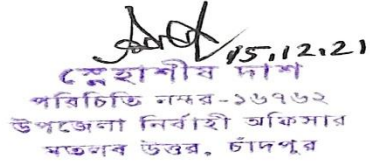 15.12.21
স্নেহাশীষ দাশ
পরিচিতি নম্বর-১৬৭৬২
উপজেলা নির্বাহী অফিসার
মতলব উত্তর, চাঁদপুর